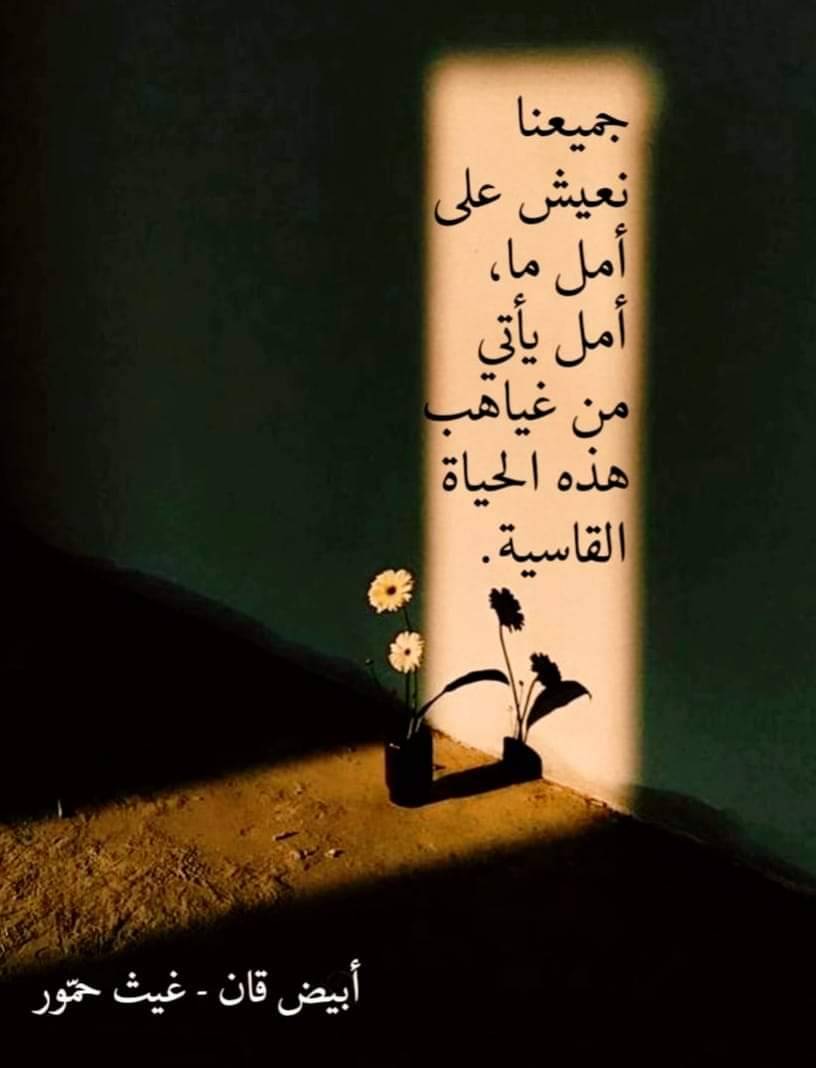 جميعنا
نعيش على
أمل ما،
أمل يأتي
من غياهب
هذه الحياة
القاسية.
أبيض قان - غيث حمّور